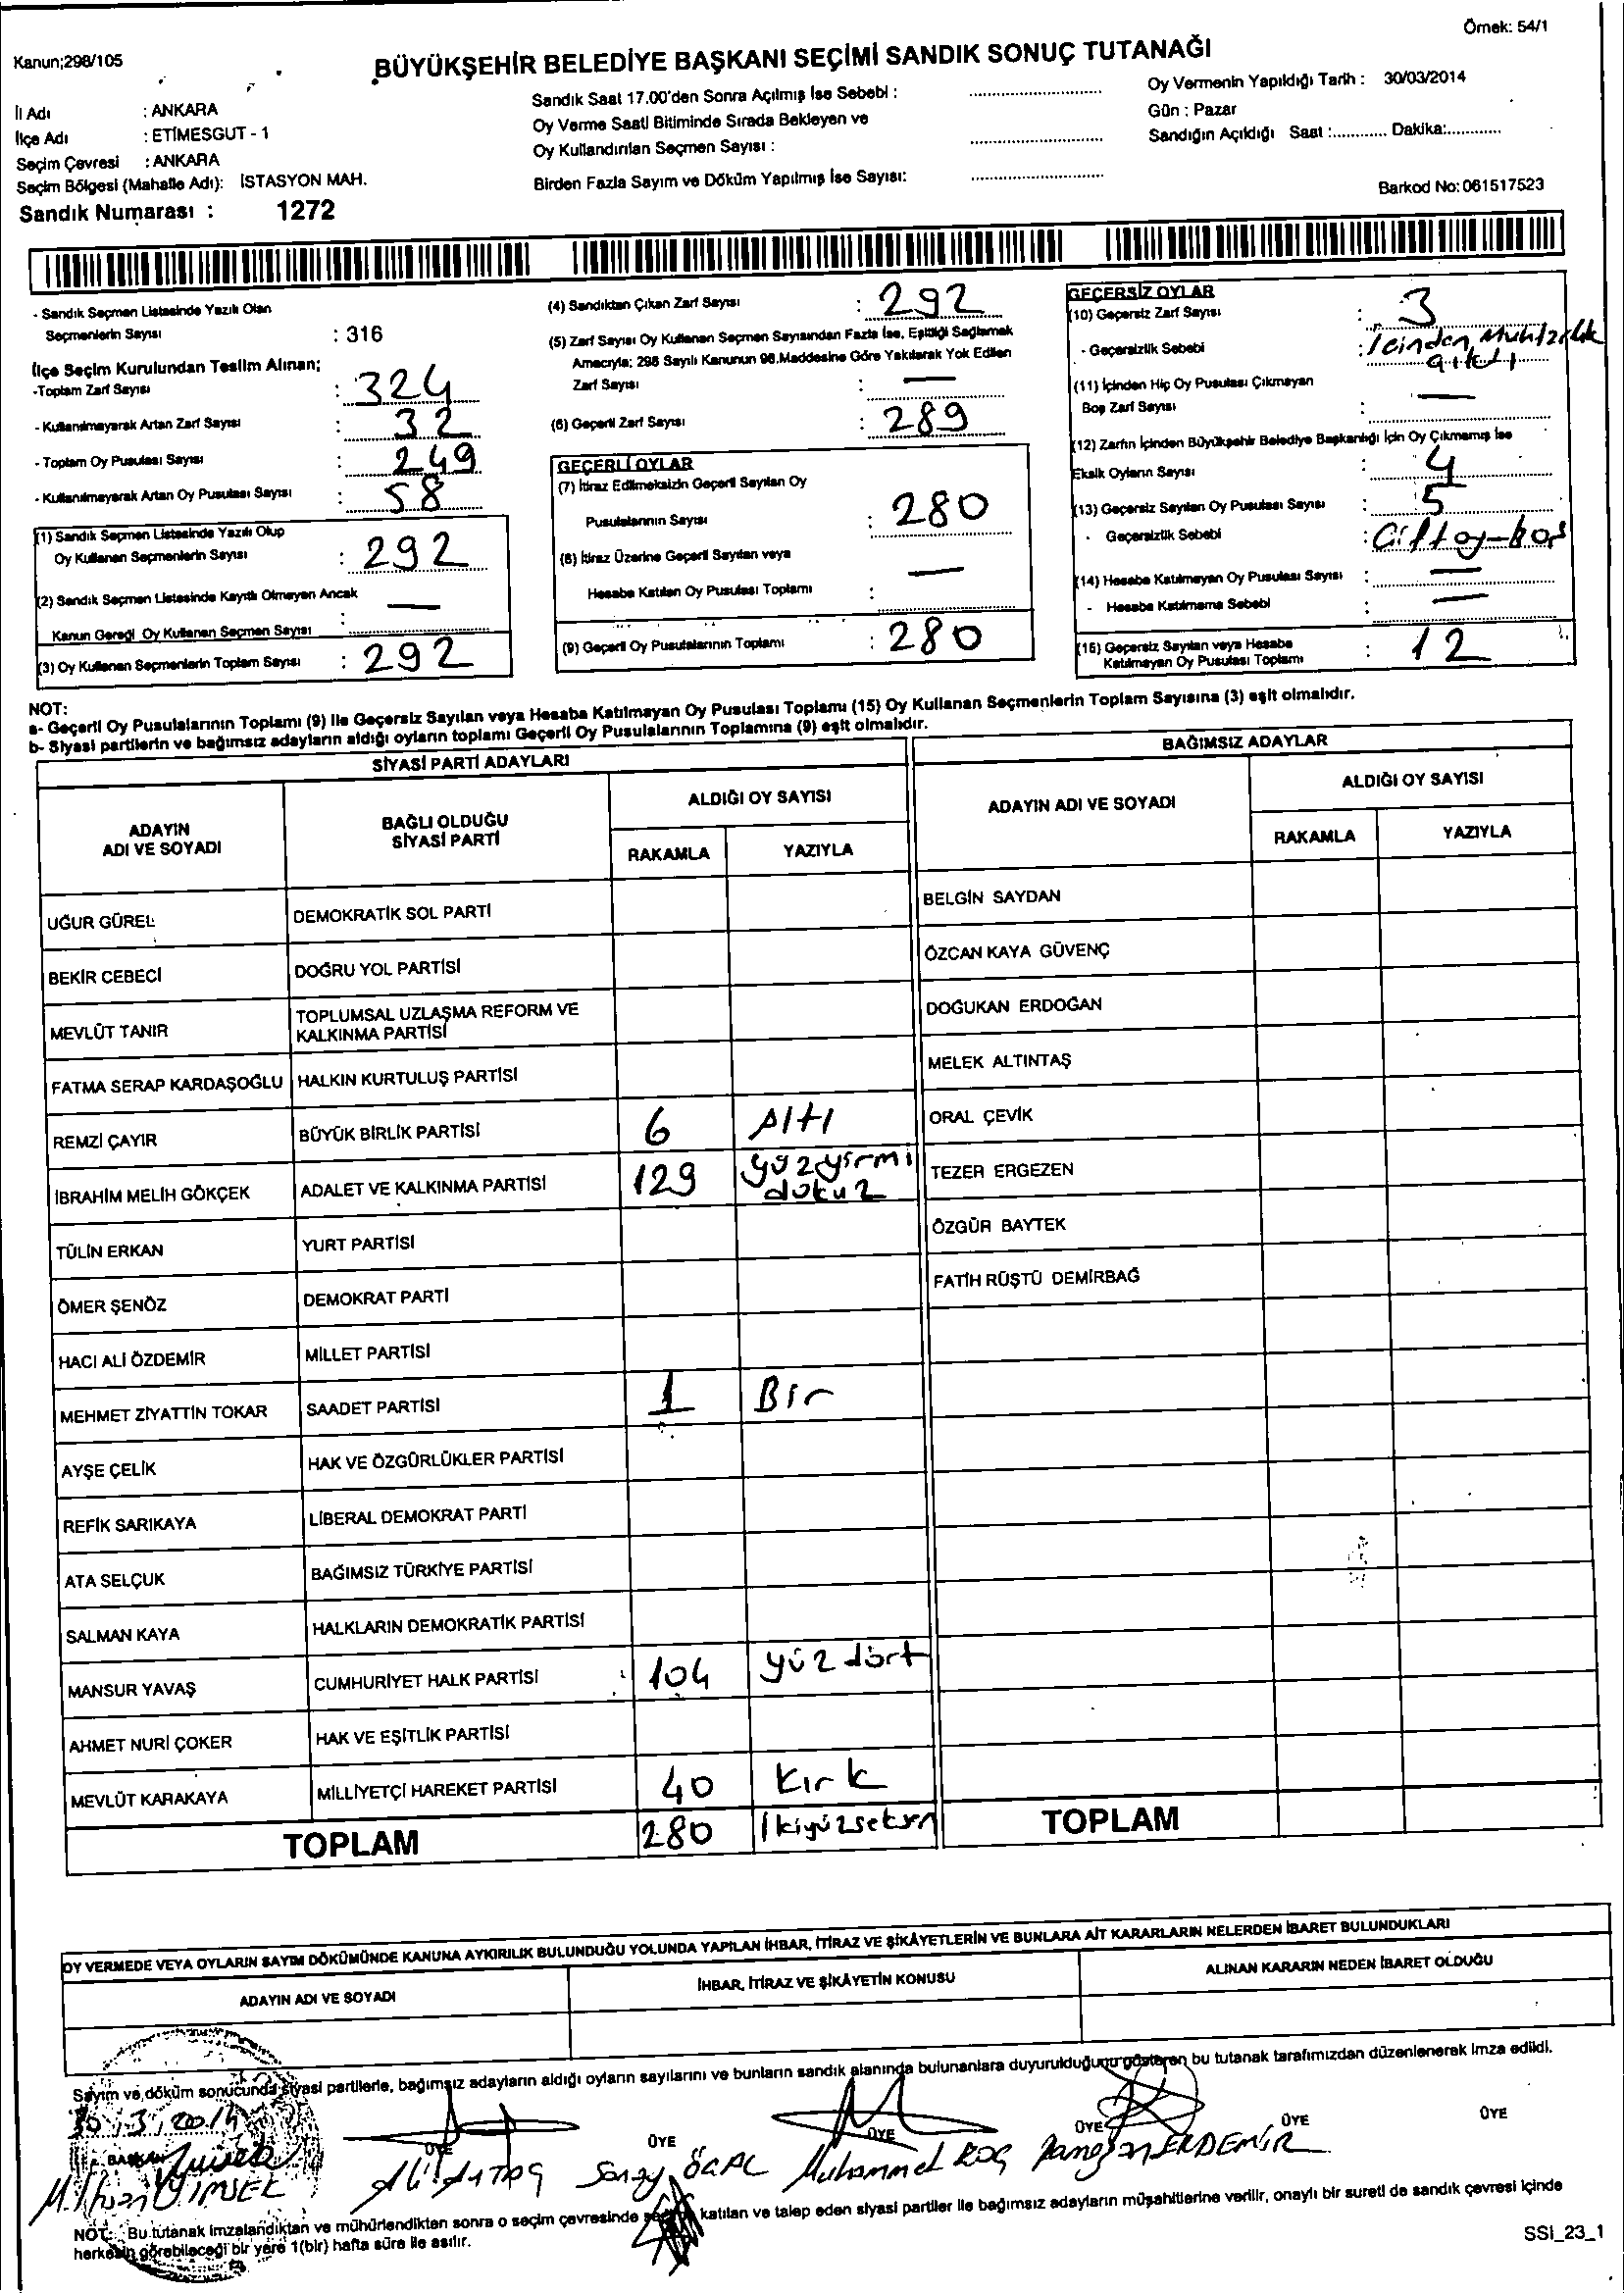 Örnek: 54/1
Kanun;298/105
BÜYÜKŞEHİR BELEDİYE BAŞKANI SEÇİMİ SANDIK SONUÇ TUTANAĞI
İl Adı : ANKARA
İlçe Adı : ETİMESGUT - 1
Seçim Çevresi : ANKARA
Seçim Bölgesi (Mahalle Adı): İSTASYON MAH.
Sandık Numarası : 1272
Sandık Saat 17.00'den Sonra Açılmış İse Sebebi :
Oy Verme Saati Bitiminde Sırada Bekleyen ve
Oy Kullandırılan Seçmen Sayısı :
Birden Fazla Sayım ve Döküm Yapılmış İse Sayısı:
Oy Vermenin Yapıldığı Tarih : 30/03/2014
Gün : Pazar
Sandığın Açıldığı Saat :............ Dakika:............
Barkod No: 061517523
- Sandık Seçmen Listesinde Yazılı Olan
Seçmenlerin Sayısı : 316
İlçe Seçim Kurulundan Teslim Alınan;
-Toplam Zarf Sayısı : 324
- Kullanılmayarak Artan Zarf Sayısı : 32
- Toplam Oy Pusulası Sayısı : 249
- Kullanılmayarak Artan Oy Pusulası Sayısı : 58
(1) Sandık Seçmen Listesinde Yazılı Olup
Oy Kullanan Seçmenlerin Sayısı : 292
(2) Sandık Seçmen Listesinde Kayıtlı Olmayan Ancak
Kanun Gereği Oy Kullanan Seçmen Sayısı : —
(3) Oy Kullanan Seçmenlerin Toplam Sayısı : 292
(4) Sandıktan Çıkan Zarf Sayısı : 292
(5) Zarf Sayısı Oy Kullanan Seçmen Sayısından Fazla İse, Eşitliği Sağlamak
Amacıyla; 298 Sayılı Kanunun 98.Maddesine Göre Yakılarak Yok Edilen
Zarf Sayısı : —
(6) Geçerli Zarf Sayısı : 289
GEÇERLİ OYLAR
(7) İtiraz Edilmeksizin Geçerli Sayılan Oy
Pusulalarının Sayısı : 280
(8) İtiraz Üzerine Geçerli Sayılan veya
Hesaba Katılan Oy Pusulası Toplamı : —
(9) Geçerli Oy Pusulalarının Toplamı : 280
GEÇERSİZ OYLAR
(10) Geçersiz Zarf Sayısı : 3
- Geçersizlik Sebebi : İçinden Muhtarlık
çıktı
(11) İçinden Hiç Oy Pusulası Çıkmayan
Boş Zarf Sayısı : —
(12) Zarfın İçinden Büyükşehir Belediye Başkanlığı İçin Oy Çıkmamış İse
Eksik Oyların Sayısı : 4
(13) Geçersiz Sayılan Oy Pusulası Sayısı : 5
- Geçersizlik Sebebi : Çift oy-boş
(14) Hesaba Katılmayan Oy Pusulası Sayısı : —
- Hesaba Katılmama Sebebi : —
(15) Geçersiz Sayılan veya Hesaba
Katılmayan Oy Pusulası Toplamı : 12
NOT:
a- Geçerli Oy Pusulalarının Toplamı (9) ile Geçersiz Sayılan veya Hesaba Katılmayan Oy Pusulası Toplamı (15) Oy Kullanan Seçmenlerin Toplam Sayısına (3) eşit olmalıdır.
b- Siyasi partilerin ve bağımsız adayların aldığı oyların toplamı Geçerli Oy Pusulalarının Toplamına (9) eşit olmalıdır.
SİYASİ PARTİ ADAYLARI
ADAYIN ADI VE SOYADI BAĞLI OLDUĞU SİYASİ PARTİ ALDIĞI OY SAYISI
RAKAMLA YAZIYLA
UĞUR GÜREL DEMOKRATİK SOL PARTİ
BEKİR CEBECİ DOĞRU YOL PARTİSİ
MEVLÜT TANIR TOPLUMSAL UZLAŞMA REFORM VE KALKINMA PARTİSİ
FATMA SERAP KARDAŞOĞLU HALKIN KURTULUŞ PARTİSİ
REMZİ ÇAYIR BÜYÜK BİRLİK PARTİSİ 6 Altı
İBRAHİM MELİH GÖKÇEK ADALET VE KALKINMA PARTİSİ 129 yüzyirmi dokuz
TÜLİN ERKAN YURT PARTİSİ
ÖMER ŞENÖZ DEMOKRAT PARTİ
HACI ALİ ÖZDEMİR MİLLET PARTİSİ
MEHMET ZİYATTİN TOKAR SAADET PARTİSİ 1 Bir
AYŞE ÇELİK HAK VE ÖZGÜRLÜKLER PARTİSİ
REFİK SARIKAYA LİBERAL DEMOKRAT PARTİ
ATA SELÇUK BAĞIMSIZ TÜRKİYE PARTİSİ
SALMAN KAYA HALKLARIN DEMOKRATİK PARTİSİ
MANSUR YAVAŞ CUMHURİYET HALK PARTİSİ 104 yüz dört
AHMET NURİ ÇOKER HAK VE EŞİTLİK PARTİSİ
MEVLÜT KARAKAYA MİLLİYETÇİ HAREKET PARTİSİ 40 Kırk
TOPLAM 280 İkiyüzseksen
BAĞIMSIZ ADAYLAR
ADAYIN ADI VE SOYADI ALDIĞI OY SAYISI
RAKAMLA YAZIYLA
BELGİN SAYDAN
ÖZCAN KAYA GÜVENÇ
DOĞUKAN ERDOĞAN
MELEK ALTINTAŞ
ORAL ÇEVİK
TEZER ERGEZEN
ÖZGÜR BAYTEK
FATİH RÜŞTÜ DEMİRBAĞ
TOPLAM
OY VERMEDE VEYA OYLARIN SAYIM DÖKÜMÜNDE KANUNA AYKIRILIK BULUNDUĞU YOLUNDA YAPILAN İHBAR, İTİRAZ VE ŞİKÂYETLERİN VE BUNLARA AİT KARARLARIN NELERDEN İBARET BULUNDUKLARI
ADAYIN ADI VE SOYADI İHBAR, İTİRAZ VE ŞİKÂYETİN KONUSU ALINAN KARARIN NEDEN İBARET OLDUĞU
Sayım ve döküm sonucunda siyasi partilerle, bağımsız adayların aldığı oyların sayılarını ve bunların sandık alanında bulunanlara duyurulduğunu gösteren bu tutanak tarafımızdan düzenlenerek imza edildi.
30.3.2014
BAŞKAN ÜYE ÜYE ÜYE ÜYE ÜYE ÜYE
ŞİMŞEK Ali Muhammet KOÇ Ramazan ERDEMİR
NOT: Bu tutanak imzalandıktan ve mühürlendikten sonra o seçim çevresinde seçime katılan ve talep eden siyasi partiler ile bağımsız adayların müşahitlerine verilir, onaylı bir sureti de sandık çevresi içinde
herkesin görebileceği bir yere 1(bir) hafta süre ile asılır.
SSİ_23_1